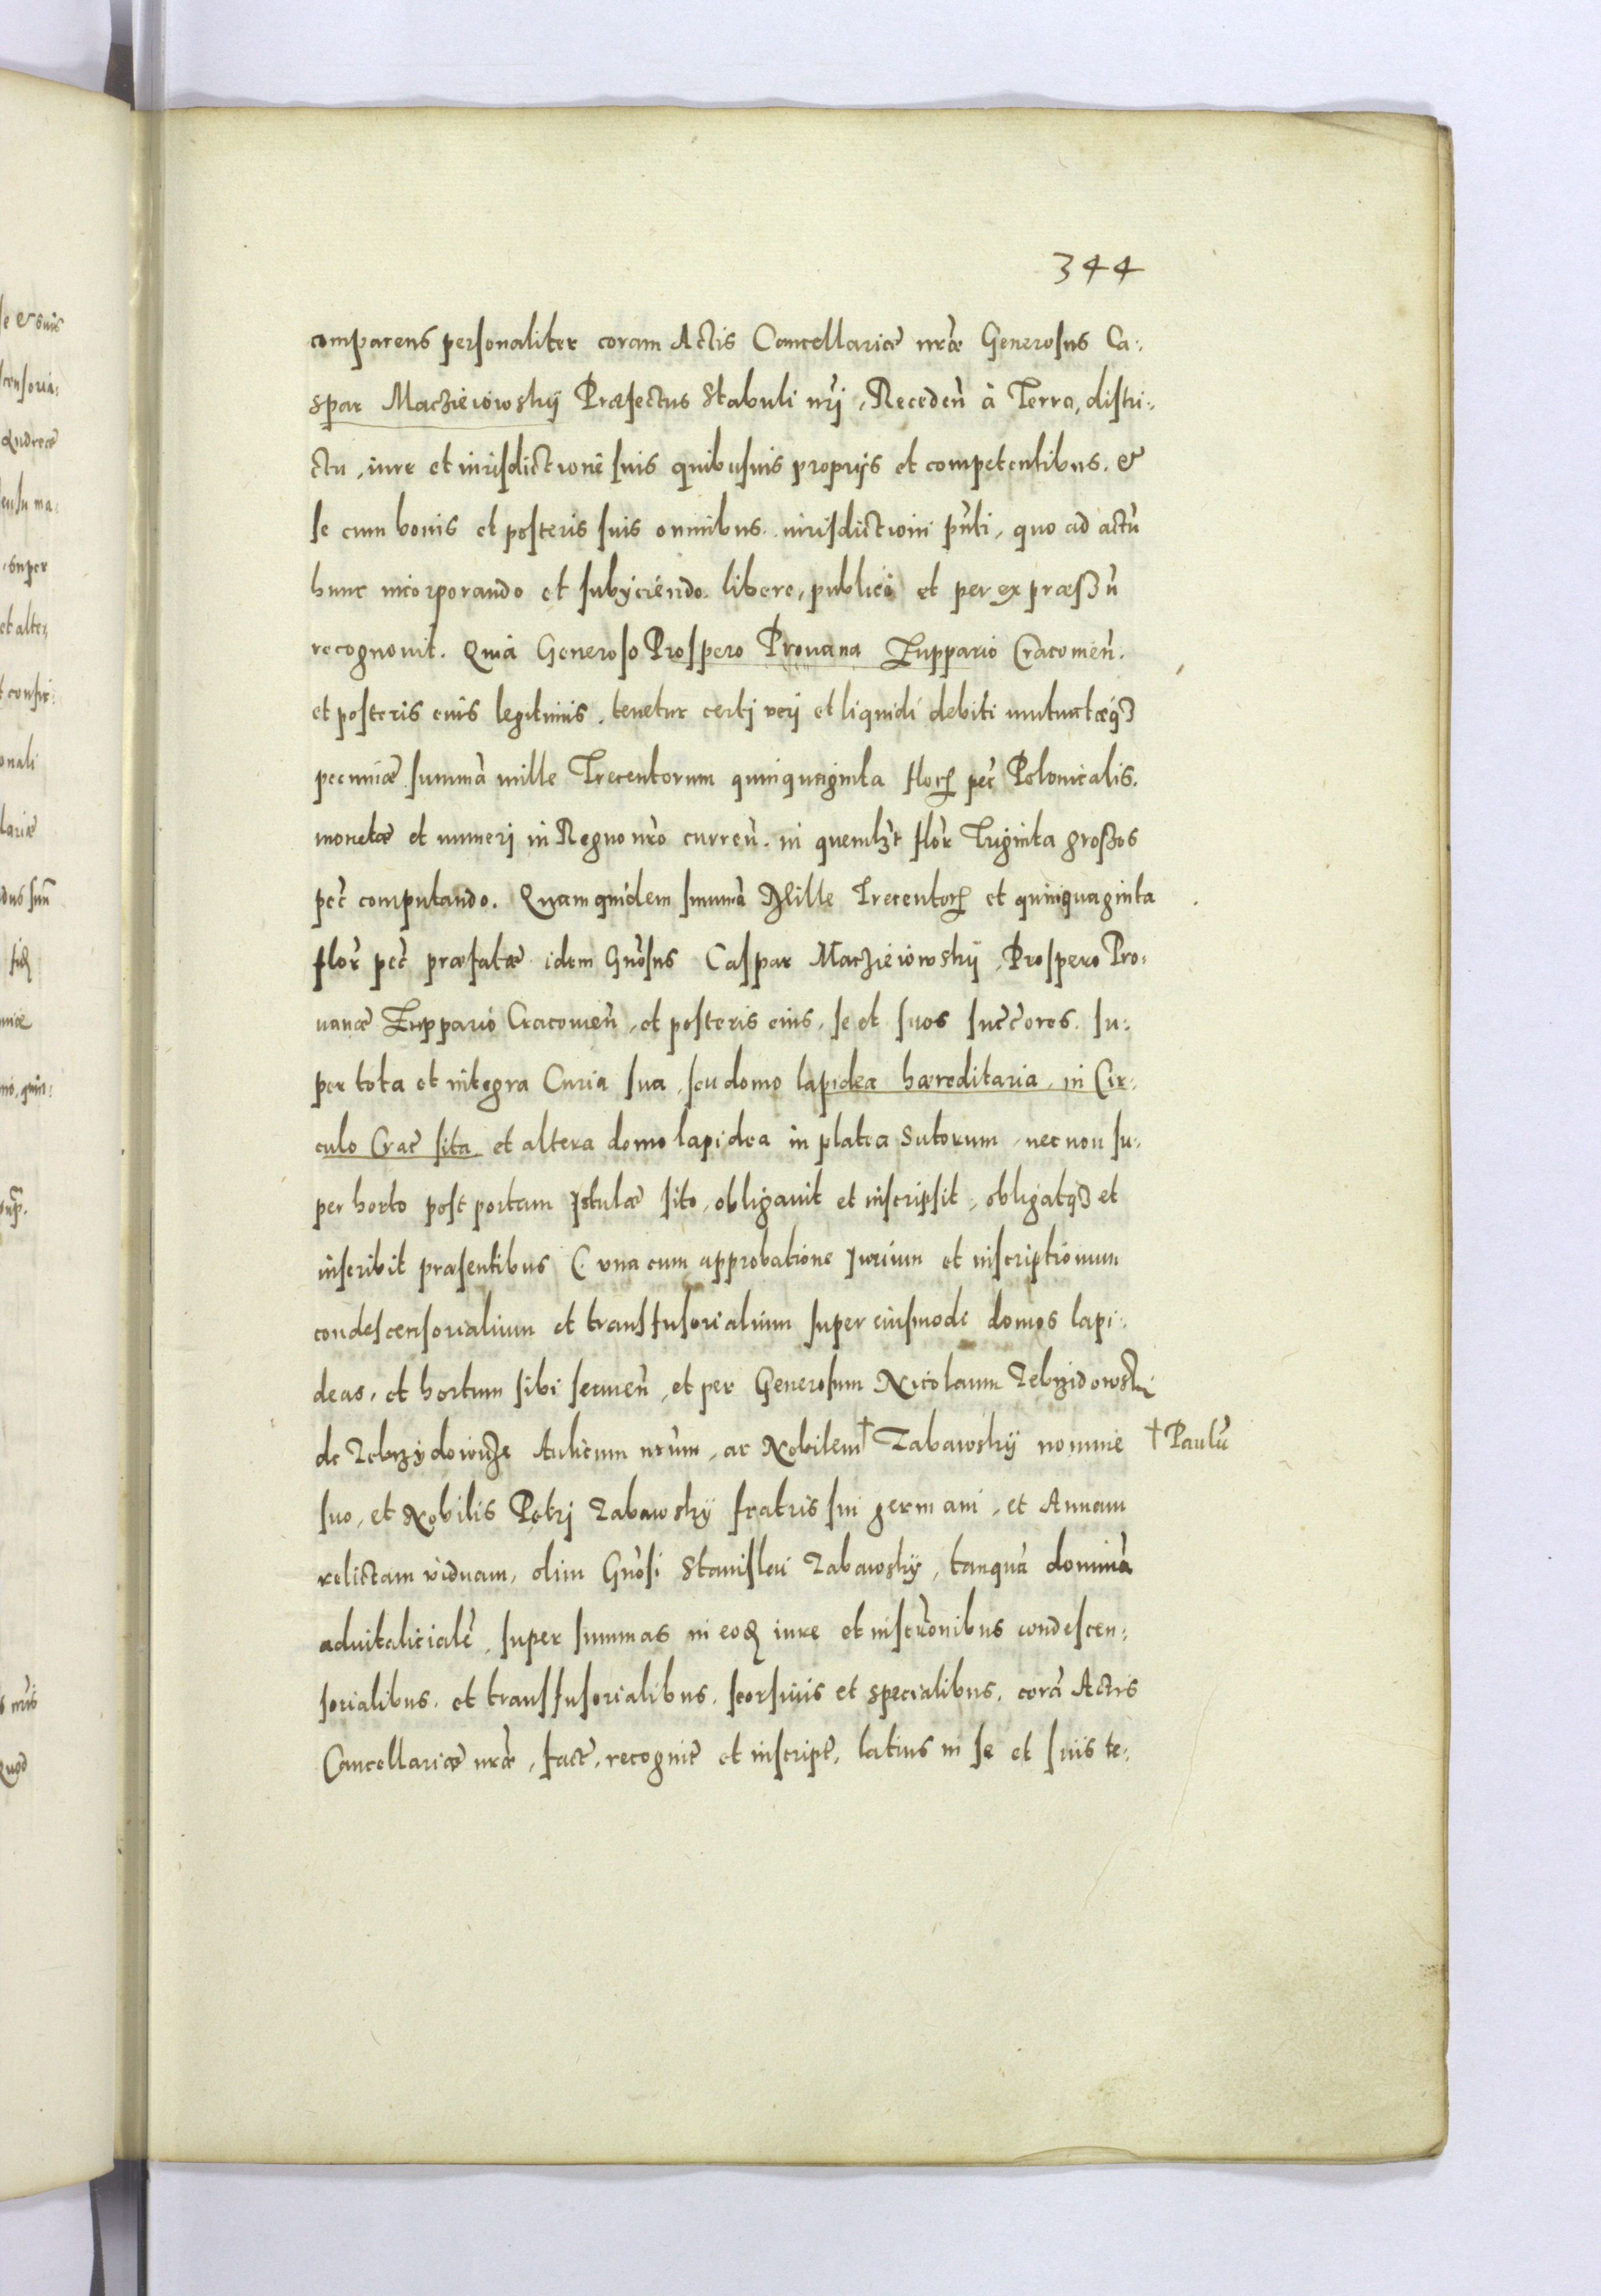 344
comparens personaliter coram Actis Cancellariæ nræ Generosus Ca:
spar Maczieiowskij Præfectus Stabuli nrj, Receden̄ à Terra, distri:
ctu, iure et iurisdictione suis quibusuis proprijs et competentibus. &
se cum bonis et posteris suis omnibus. iurisdictioni pn̄ti, quo ad actū
hunc incorporando et subijciendo. libere, publice et per expræssū
recognouit. Quia Generoso Prospero Prouana Zuppario Cracouien̄.
et posteris eius legitimis. tenetur certj verj et liquidi debiti mutuatæq3
pecuniæ summā mille Trecentorum quinquaginta flor pec̄ Polonicalis.
monetæ et numerj in Regno nr̄o curren̄. in quemlꝫt flor̄ Triginta grossos
pec̄ computando. Quamquidem summā Mille Trecentor et quinquaginta
flor̄ pec̄ præfatæ idem Gn̄osus Caspar Macziéiowskij, Prospero Pro:
uanæ Zuppario Cracouien̄, et posteris eius, se et suos succ̄ores. su:
per tota et integra Curia sua, seu domo lapidea hæreditaria, in Cir:
culo Crac̄ sita et altera domo lapidea in platea Sutorum, nec non su:
per horto post portam Istulæ sito, obligauit et inscripsit, obligatq3 et
inscribit præsentibus (: vna cum approbatione Jurium et inscriptionum
condescensorialium et transfusorialium super eiusmodi domos lapi:
deas, et hortum sibi seruien̄, et per Generosum Nicolaum Zebrzidowski
de Zebrzydowicze Aulicum nrūm, ac Nobilem † Zabawskij nomine † Paulū
suo, et Nobilis Petrj Zabawskij fratris sui germani, et Annam
relictam viduam, olim Gn̄osi Stanislai Zabawskij, tanquā dominā
aduitalicialē, super summas in eoꝝ iure et inscrōnibus condescen:
sorialibus. et transfusorialibus. seorsiuis et specialibus. corā Actis
Cancellariæ nræ, fact̄, recognit̄ et inscript̄, latius in se et suis te: